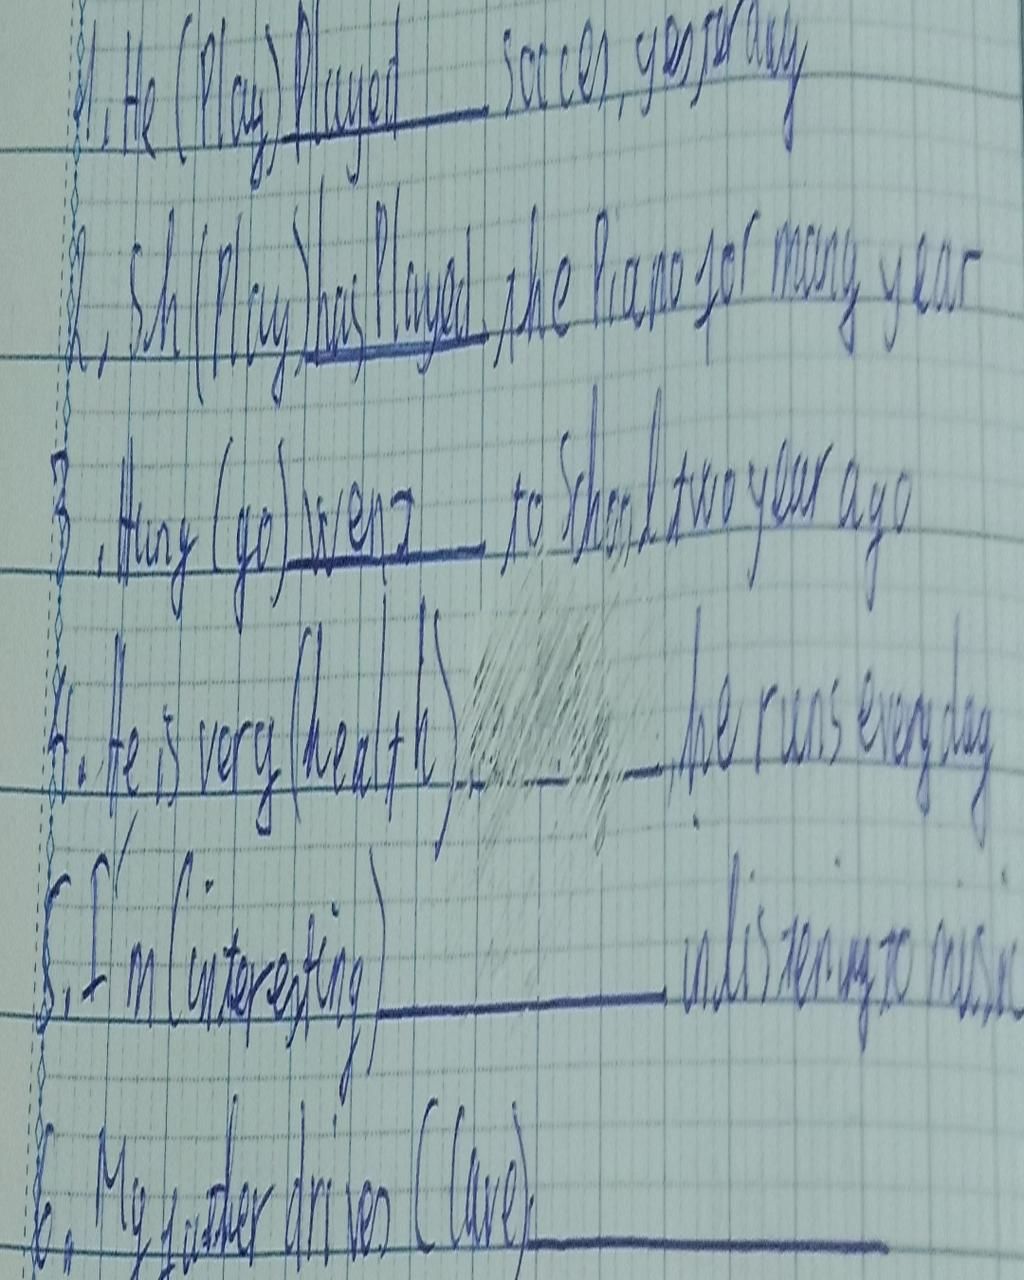 1. He (Play) Played soccer, yesterday
2. Sh (Play) has Played the Piano for many year
3. Hung (go) went to School two year ago
4. He is very (health) he runs every day
5. I'm (interesting) in listening to music
6. My father drives (Care)